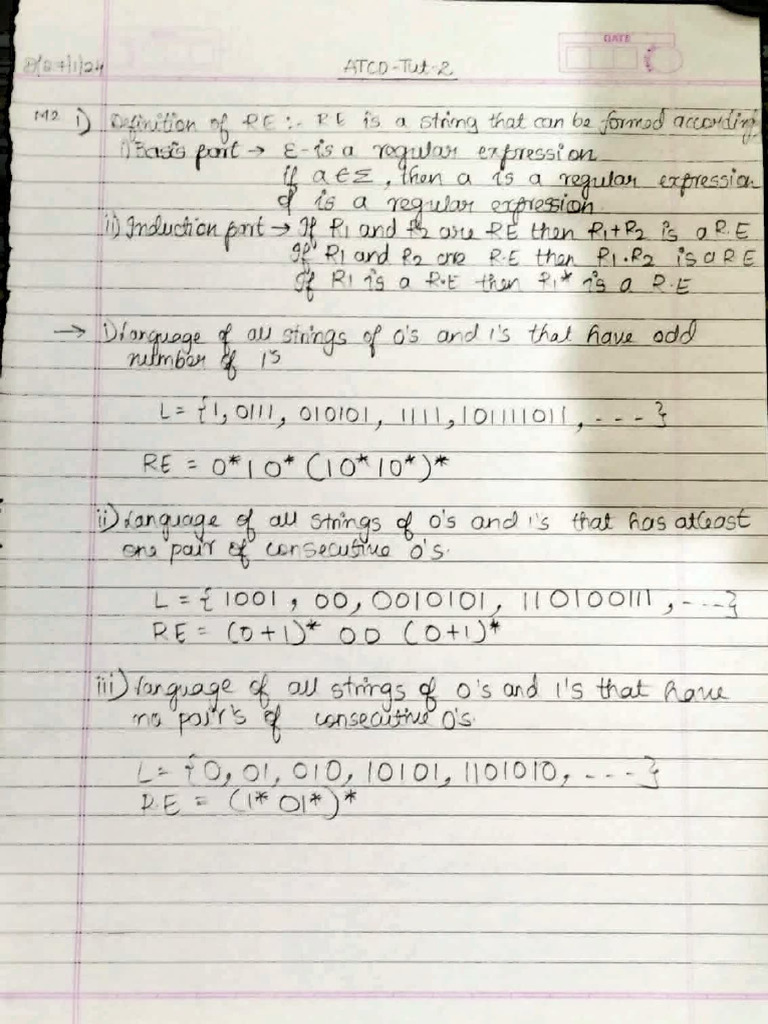 DATE
ATCD-Tut-2
M2 i) Definition of RE :- RE is a string that can be formed according
i) Basis part → ε-is a regular expression
if a∈Σ, then a is a regular expression
is a regular expression
ii) Induction part → If R1 and R2 are RE then R1+R2 is a R.E
If R1 and R2 are R.E then R1.R2 is a R E
If R1 is a R.E then R1* is a R.E
→ i) Language of all strings of 0's and 1's that have odd
number of 1's
L = {1, 0111, 010101, 1111, 101111011, - - - }
RE = 0*10* (10*10*)*
ii) Language of all strings of 0's and 1's that has atleast
one pair of consecutive 0's.
L = { 1001, 00, 0010101, 110100111, ---}
RE = (0+1)* 00 (0+1)*
iii) Language of all strings of 0's and 1's that have
no pair's of consecutive 0's.
L = {0, 01, 010, 10101, 1101010, - - - -}
R.E = (1* 01*)*